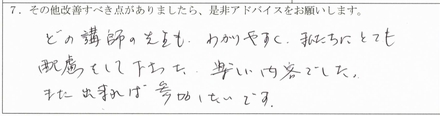 7. その他改善すべき点がありましたら、是非アドバイスをお願いします。
どの講師の先生も、わかりやすく、私たちにとても
配慮をして下さった、楽しい内容でした。
また出来れば参加したいです。